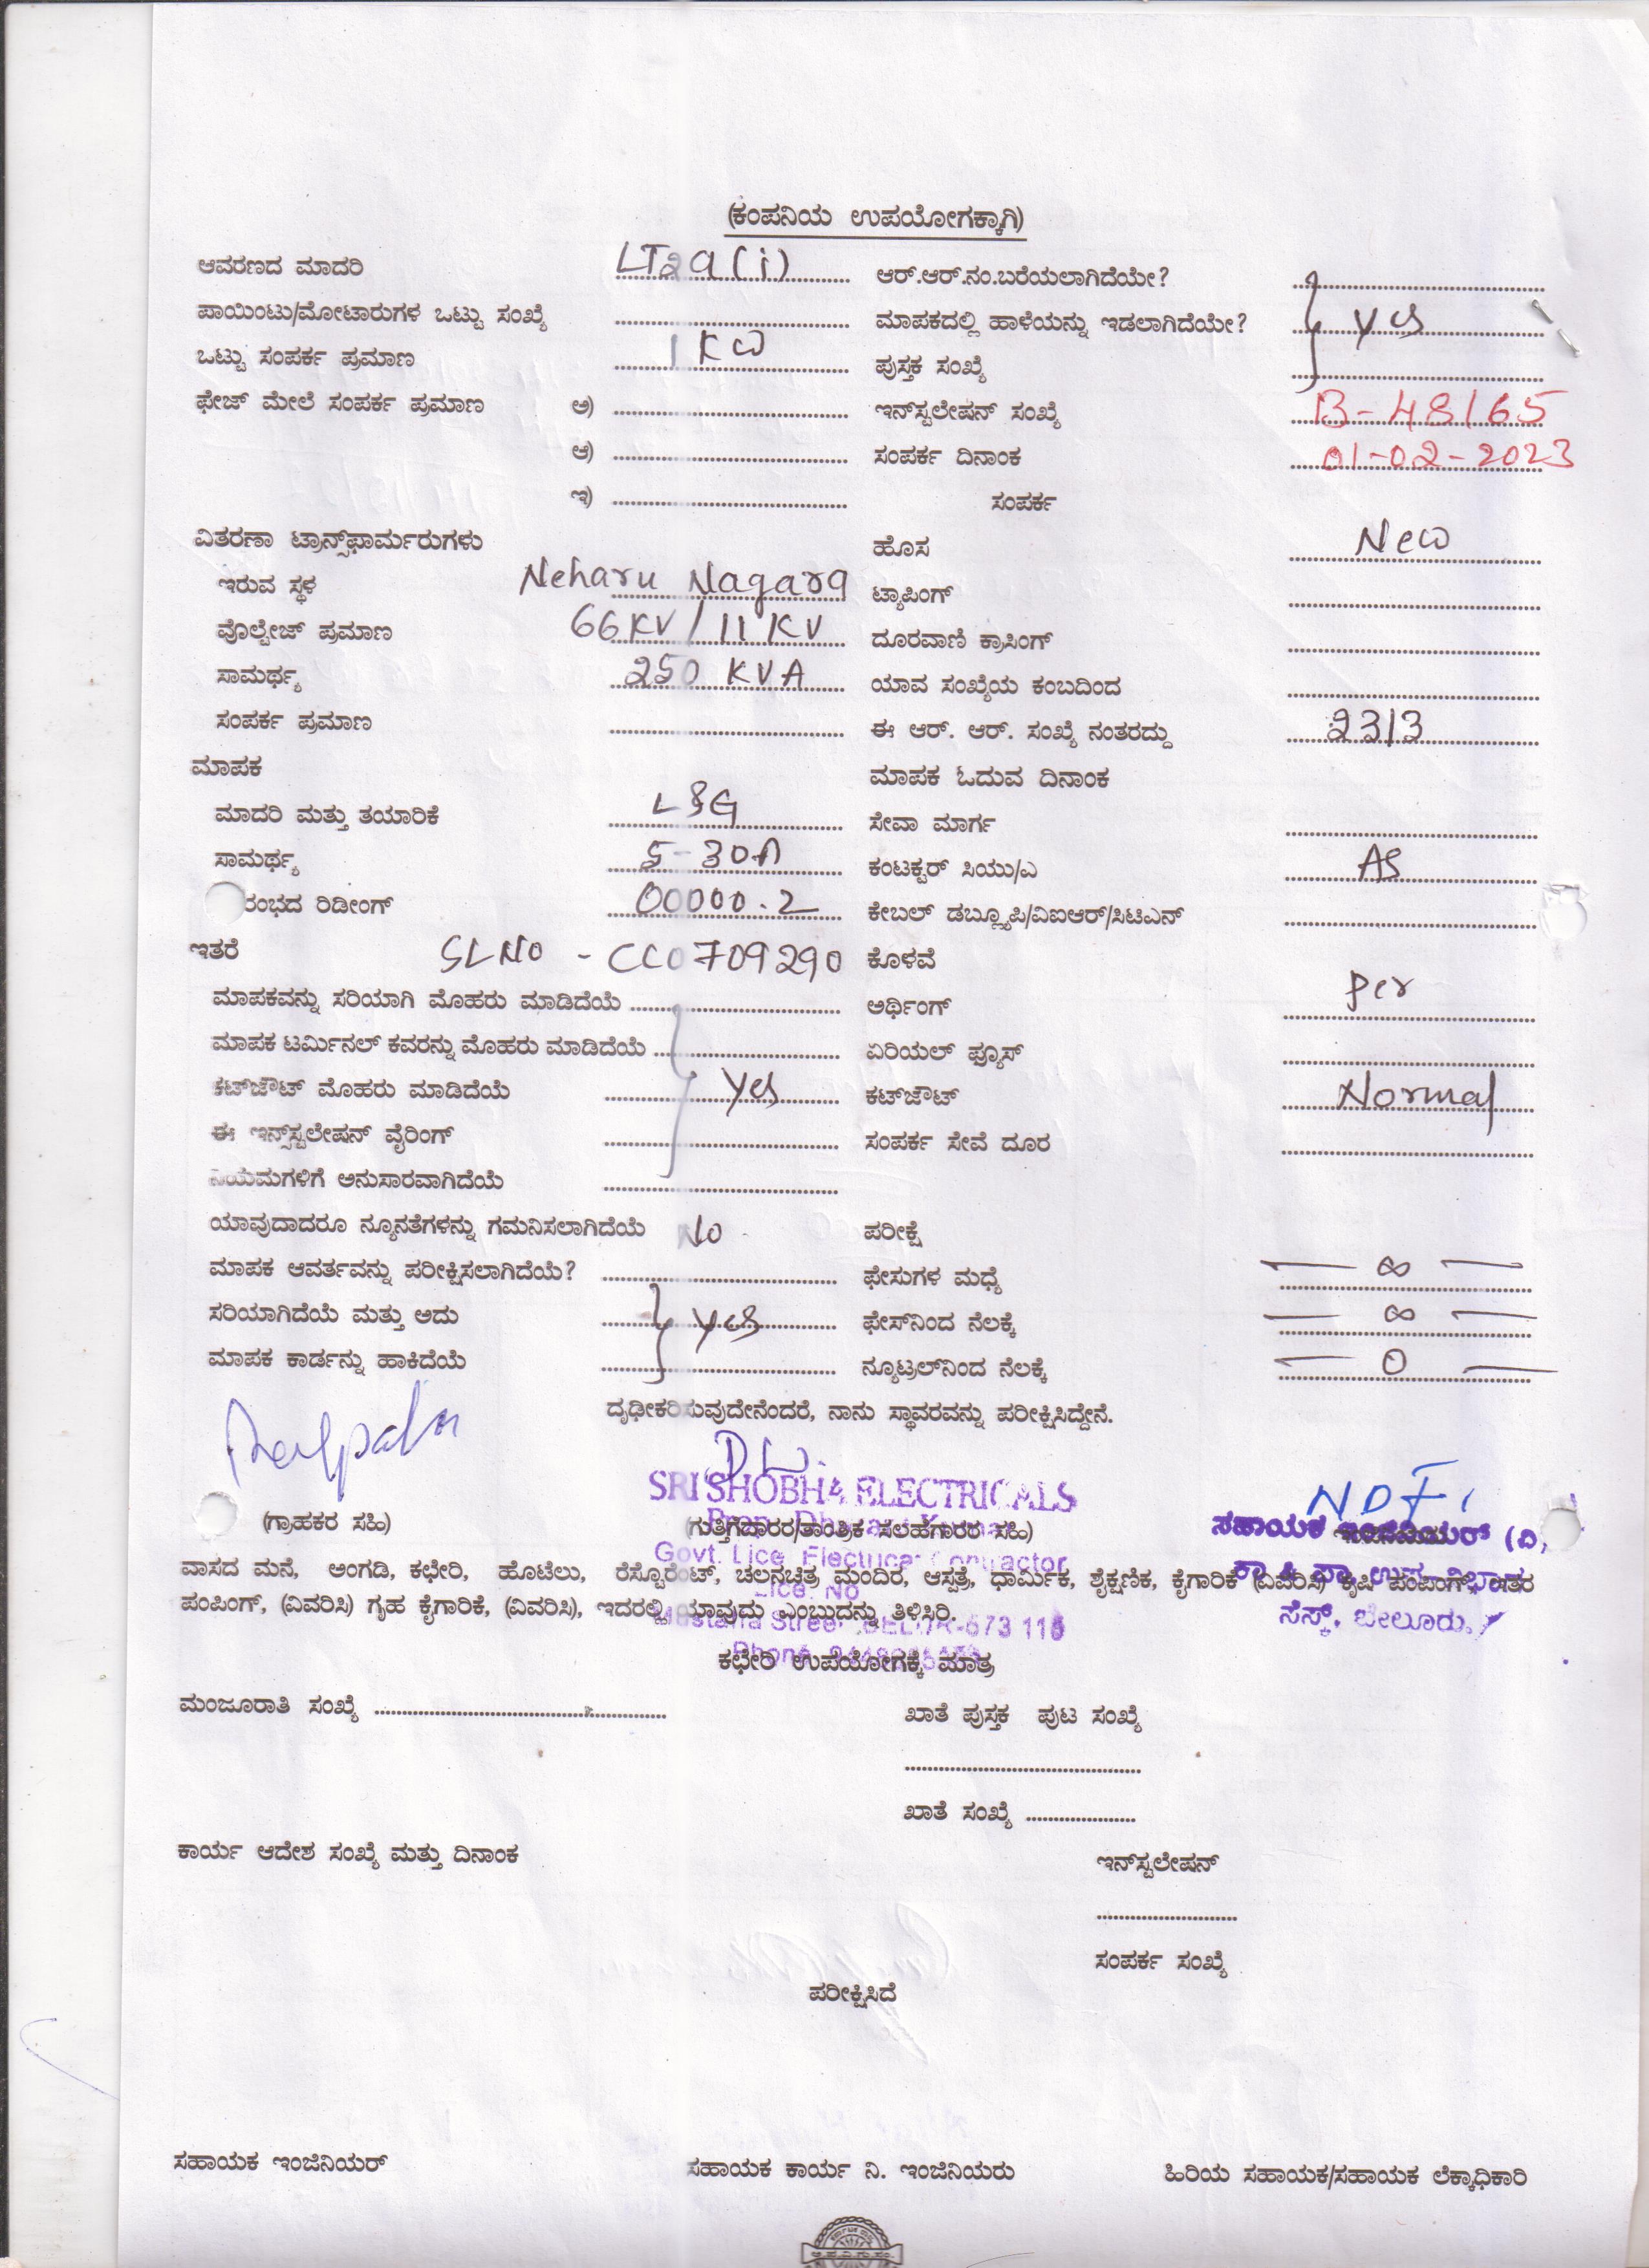 (ಕಂಪನಿಯ ಉಪಯೋಗಕ್ಕಾಗಿ)
ಆವರಣದ ಮಾದರಿ LT2a(i) ಆರ್.ಆರ್.ನಂ.ಬರೆಯಲಾಗಿದೆಯೇ?
ಪಾಯಿಂಟು/ಮೋಟಾರುಗಳ ಒಟ್ಟು ಸಂಖ್ಯೆ ಮಾಪಕದಲ್ಲಿ ಹಾಳೆಯನ್ನು ಇಡಲಾಗಿದೆಯೇ? yes
ಒಟ್ಟು ಸಂಪರ್ಕ ಪ್ರಮಾಣ 1 KW ಪುಸ್ತಕ ಸಂಖ್ಯೆ
ಫೇಜ್ ಮೇಲೆ ಸಂಪರ್ಕ ಪ್ರಮಾಣ ಅ) ಇನ್‌ಸ್ಟಲೇಷನ್ ಸಂಖ್ಯೆ B-48165
ಆ) ಸಂಪರ್ಕ ದಿನಾಂಕ 01-02-2023
ಇ) ಸಂಪರ್ಕ
ವಿತರಣಾ ಟ್ರಾನ್ಸ್‌ಫಾರ್ಮರುಗಳು ಹೊಸ New
ಇರುವ ಸ್ಥಳ Neharu Nagara ಟ್ಯಾಪಿಂಗ್
ವೋಲ್ಟೇಜ್ ಪ್ರಮಾಣ 66KV/11KV ದೂರವಾಣಿ ಕ್ರಾಸಿಂಗ್
ಸಾಮರ್ಥ್ಯ 250 KVA ಯಾವ ಸಂಖ್ಯೆಯ ಕಂಬದಿಂದ
ಸಂಪರ್ಕ ಪ್ರಮಾಣ ಈ ಆರ್. ಆರ್. ಸಂಖ್ಯೆ ನಂತರದ್ದು 2313
ಮಾಪಕ ಮಾಪಕ ಓದುವ ದಿನಾಂಕ
ಮಾದರಿ ಮತ್ತು ತಯಾರಿಕೆ L&G ಸೇವಾ ಮಾರ್ಗ
ಸಾಮರ್ಥ್ಯ 5-30A ಕಂಟಕ್ಟರ್ ಸಿಯು/ಎ AS
ರಂಭದ ರಿಡೀಂಗ್ 00000.2 ಕೇಬಲ್ ಡಬ್ಲ್ಯೂಪಿ/ವಿಐಆರ್/ಸಿಟಿಎನ್
ಇತರೆ SLNO - CC0709290 ಕೊಳವೆ
ಮಾಪಕವನ್ನು ಸರಿಯಾಗಿ ಮೊಹರು ಮಾಡಿದೆಯೆ ಅರ್ಥಿಂಗ್ per
ಮಾಪಕ ಟರ್ಮಿನಲ್ ಕವರನ್ನು ಮೊಹರು ಮಾಡಿದೆಯೆ ಏರಿಯಲ್ ಫ್ಯೂಸ್
ಕಟ್‌ಔಟ್ ಮೊಹರು ಮಾಡಿದೆಯೆ yes ಕಟ್‌ಔಟ್ Normal
ಈ ಇನ್ಸ್‌ಸ್ಟಲೇಷನ್ ವೈರಿಂಗ್ ಸಂಪರ್ಕ ಸೇವೆ ದೂರ
ನಿಯಮಗಳಿಗೆ ಅನುಸಾರವಾಗಿದೆಯೆ
ಯಾವುದಾದರೂ ನ್ಯೂನತೆಗಳನ್ನು ಗಮನಿಸಲಾಗಿದೆಯೆ No ಪರೀಕ್ಷೆ
ಮಾಪಕ ಆವರ್ತವನ್ನು ಪರೀಕ್ಷಿಸಲಾಗಿದೆಯೆ? ಫೇಸುಗಳ ಮಧ್ಯೆ — ∞ —
ಸರಿಯಾಗಿದೆಯೆ ಮತ್ತು ಅದು yes ಫೇಸ್‌ನಿಂದ ನೆಲಕ್ಕೆ — ∞ —
ಮಾಪಕ ಕಾರ್ಡನ್ನು ಹಾಕಿದೆಯೆ ನ್ಯೂಟ್ರಲ್‌ನಿಂದ ನೆಲಕ್ಕೆ — 0 —
ದೃಢೀಕರಿಸುವುದೇನೆಂದರೆ, ನಾನು ಸ್ಥಾವರವನ್ನು ಪರೀಕ್ಷಿಸಿದ್ದೇನೆ.
SRI SHOBHA ELECTRICALS
(ಗ್ರಾಹಕರ ಸಹಿ) (ಗುತ್ತಿಗೆದಾರರ/ತಾಂತ್ರಿಕ ಸಲಹೆಗಾರರ ಸಹಿ) ಸಹಾಯಕ ಇಂಜಿನಿಯರ್ (ವಿ)
Govt. Lice. Electrical Contractor
ವಾಸದ ಮನೆ, ಅಂಗಡಿ, ಕಛೇರಿ, ಹೊಟೆಲು, ರೆಸ್ಟೊರೆಂಟ್, ಚಲನಚಿತ್ರ ಮಂದಿರ, ಆಸ್ಪತ್ರೆ, ಧಾರ್ಮಿಕ, ಶೈಕ್ಷಣಿಕ, ಕೈಗಾರಿಕೆ (ವಿವರಿಸಿ) ಕೃಷಿ ಪಂಪಿಂಗ್, ಇತರ
Lice. No
ಪಂಪಿಂಗ್, (ವಿವರಿಸಿ) ಗೃಹ ಕೈಗಾರಿಕೆ, (ವಿವರಿಸಿ), ಇದರಲ್ಲಿ ಯಾವುದು ಎಂಬುದನ್ನು ತಿಳಿಸಿರಿ. ಸೆಸ್ಕ್, ಬೇಲೂರು.
ಕಛೇರಿ ಉಪಯೋಗಕ್ಕೆ ಮಾತ್ರ
ಮಂಜೂರಾತಿ ಸಂಖ್ಯೆ ಖಾತೆ ಪುಸ್ತಕ ಪುಟ ಸಂಖ್ಯೆ
ಖಾತೆ ಸಂಖ್ಯೆ
ಕಾರ್ಯ ಆದೇಶ ಸಂಖ್ಯೆ ಮತ್ತು ದಿನಾಂಕ ಇನ್‌ಸ್ಟಲೇಷನ್
ಸಂಪರ್ಕ ಸಂಖ್ಯೆ
ಪರೀಕ್ಷಿಸಿದೆ
ಸಹಾಯಕ ಇಂಜಿನಿಯರ್ ಸಹಾಯಕ ಕಾರ್ಯ ನಿ. ಇಂಜಿನಿಯರು ಹಿರಿಯ ಸಹಾಯಕ/ಸಹಾಯಕ ಲೆಕ್ಕಾಧಿಕಾರಿ